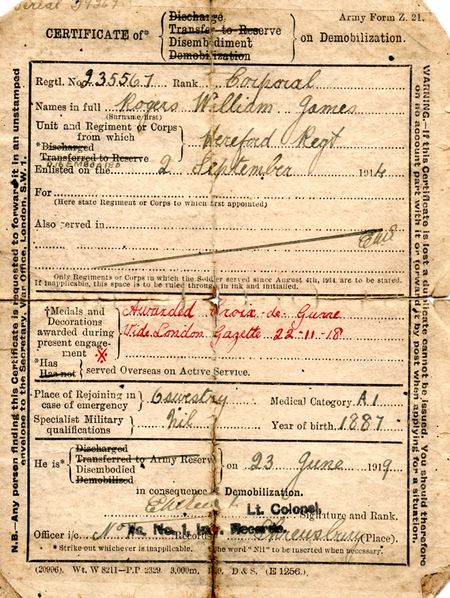 Serial
Army Form Z. 21.
CERTIFICATE of*
Discharge
Transfer to Reserve
Disembodiment
Demobilization
on Demobilization.
Regtl. No. 235567 Rank Corporal
Names in full Rogers William James
(Surname first)
Unit and Regiment or Corps
from which
*Discharged
Transferred to Reserve
DISEMBODIED
Hereford Regt
Enlisted on the 2 September 1914
For
(Here state Regiment or Corps to which first appointed)
Also served in
Only Regiments or Corps in which the Soldier served since August 4th, 1914, are to be stated.
If inapplicable, this space is to be ruled through in ink and initialled.
†Medals and
Decorations
awarded during
present engage-
ment
Awarded Croix-de-Guerre
Vide London Gazette 22-11-18
*Has
Has not
served Overseas on Active Service.
Place of Rejoining in
case of emergency
Oswestry
Medical Category A1
Specialist Military
qualifications
Nil
Year of birth 1887
He is*
Discharged
Transferred to Army Reserve
Disembodied
Demobilized
on 23 June 1919
in consequence of Demobilization.
Lt. Colonel,
Signature and Rank.
Officer i/c. No. 1 Records. Shrewsbury (Place).
*Strike out whichever is inapplicable. The word "Nil" to be inserted when necessary.
(20996). Wt. W 8211—P.P 2329. 3,000m. D. & S. (E 1256.)
N.B.—Any person finding this Certificate is requested to forward it in an unstamped
envelope to the Secretary, War Office, London, S.W. 1.
WARNING.—If this Certificate is lost a duplicate cannot be issued. You should therefore
on no account part with it or forward it by post when applying for a situation.